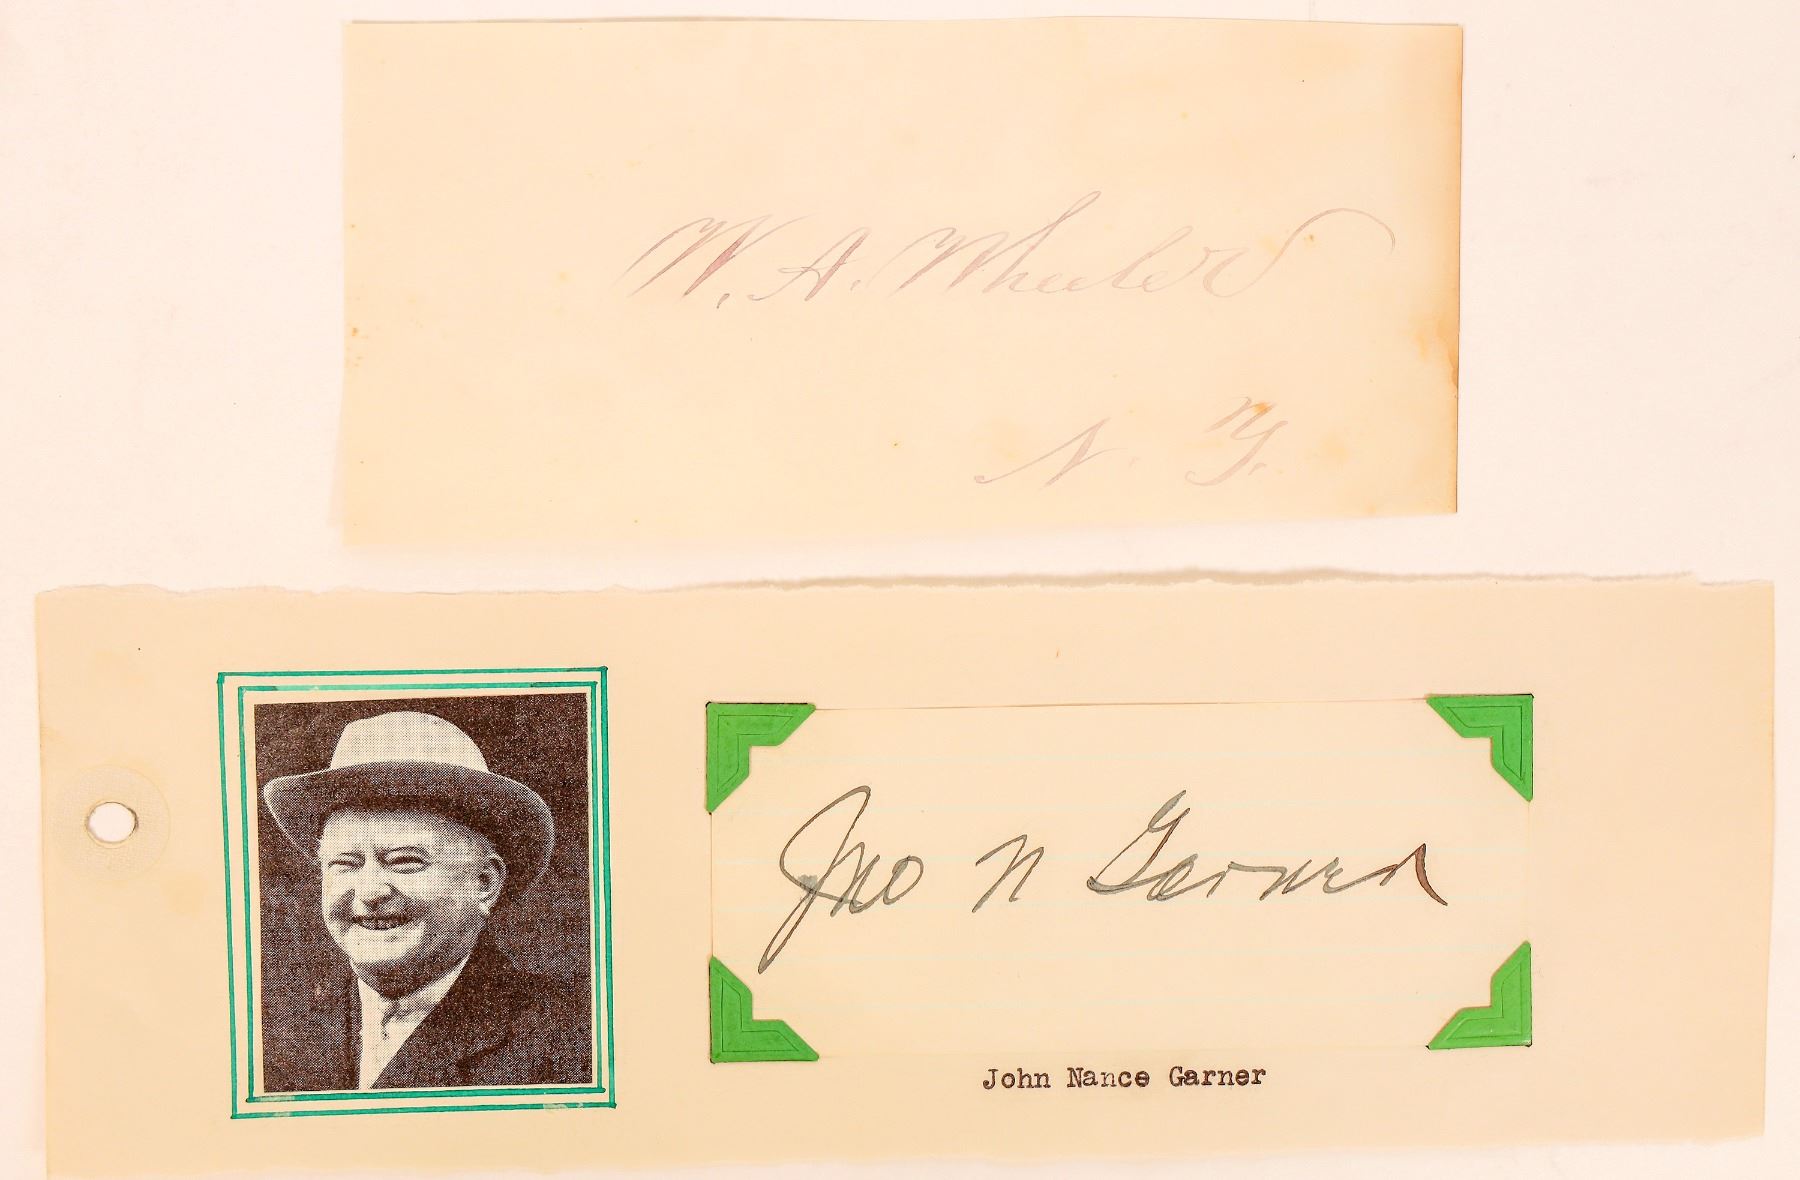 W. A. Wheeler
N. Y.
Jno N Garner
John Nance Garner